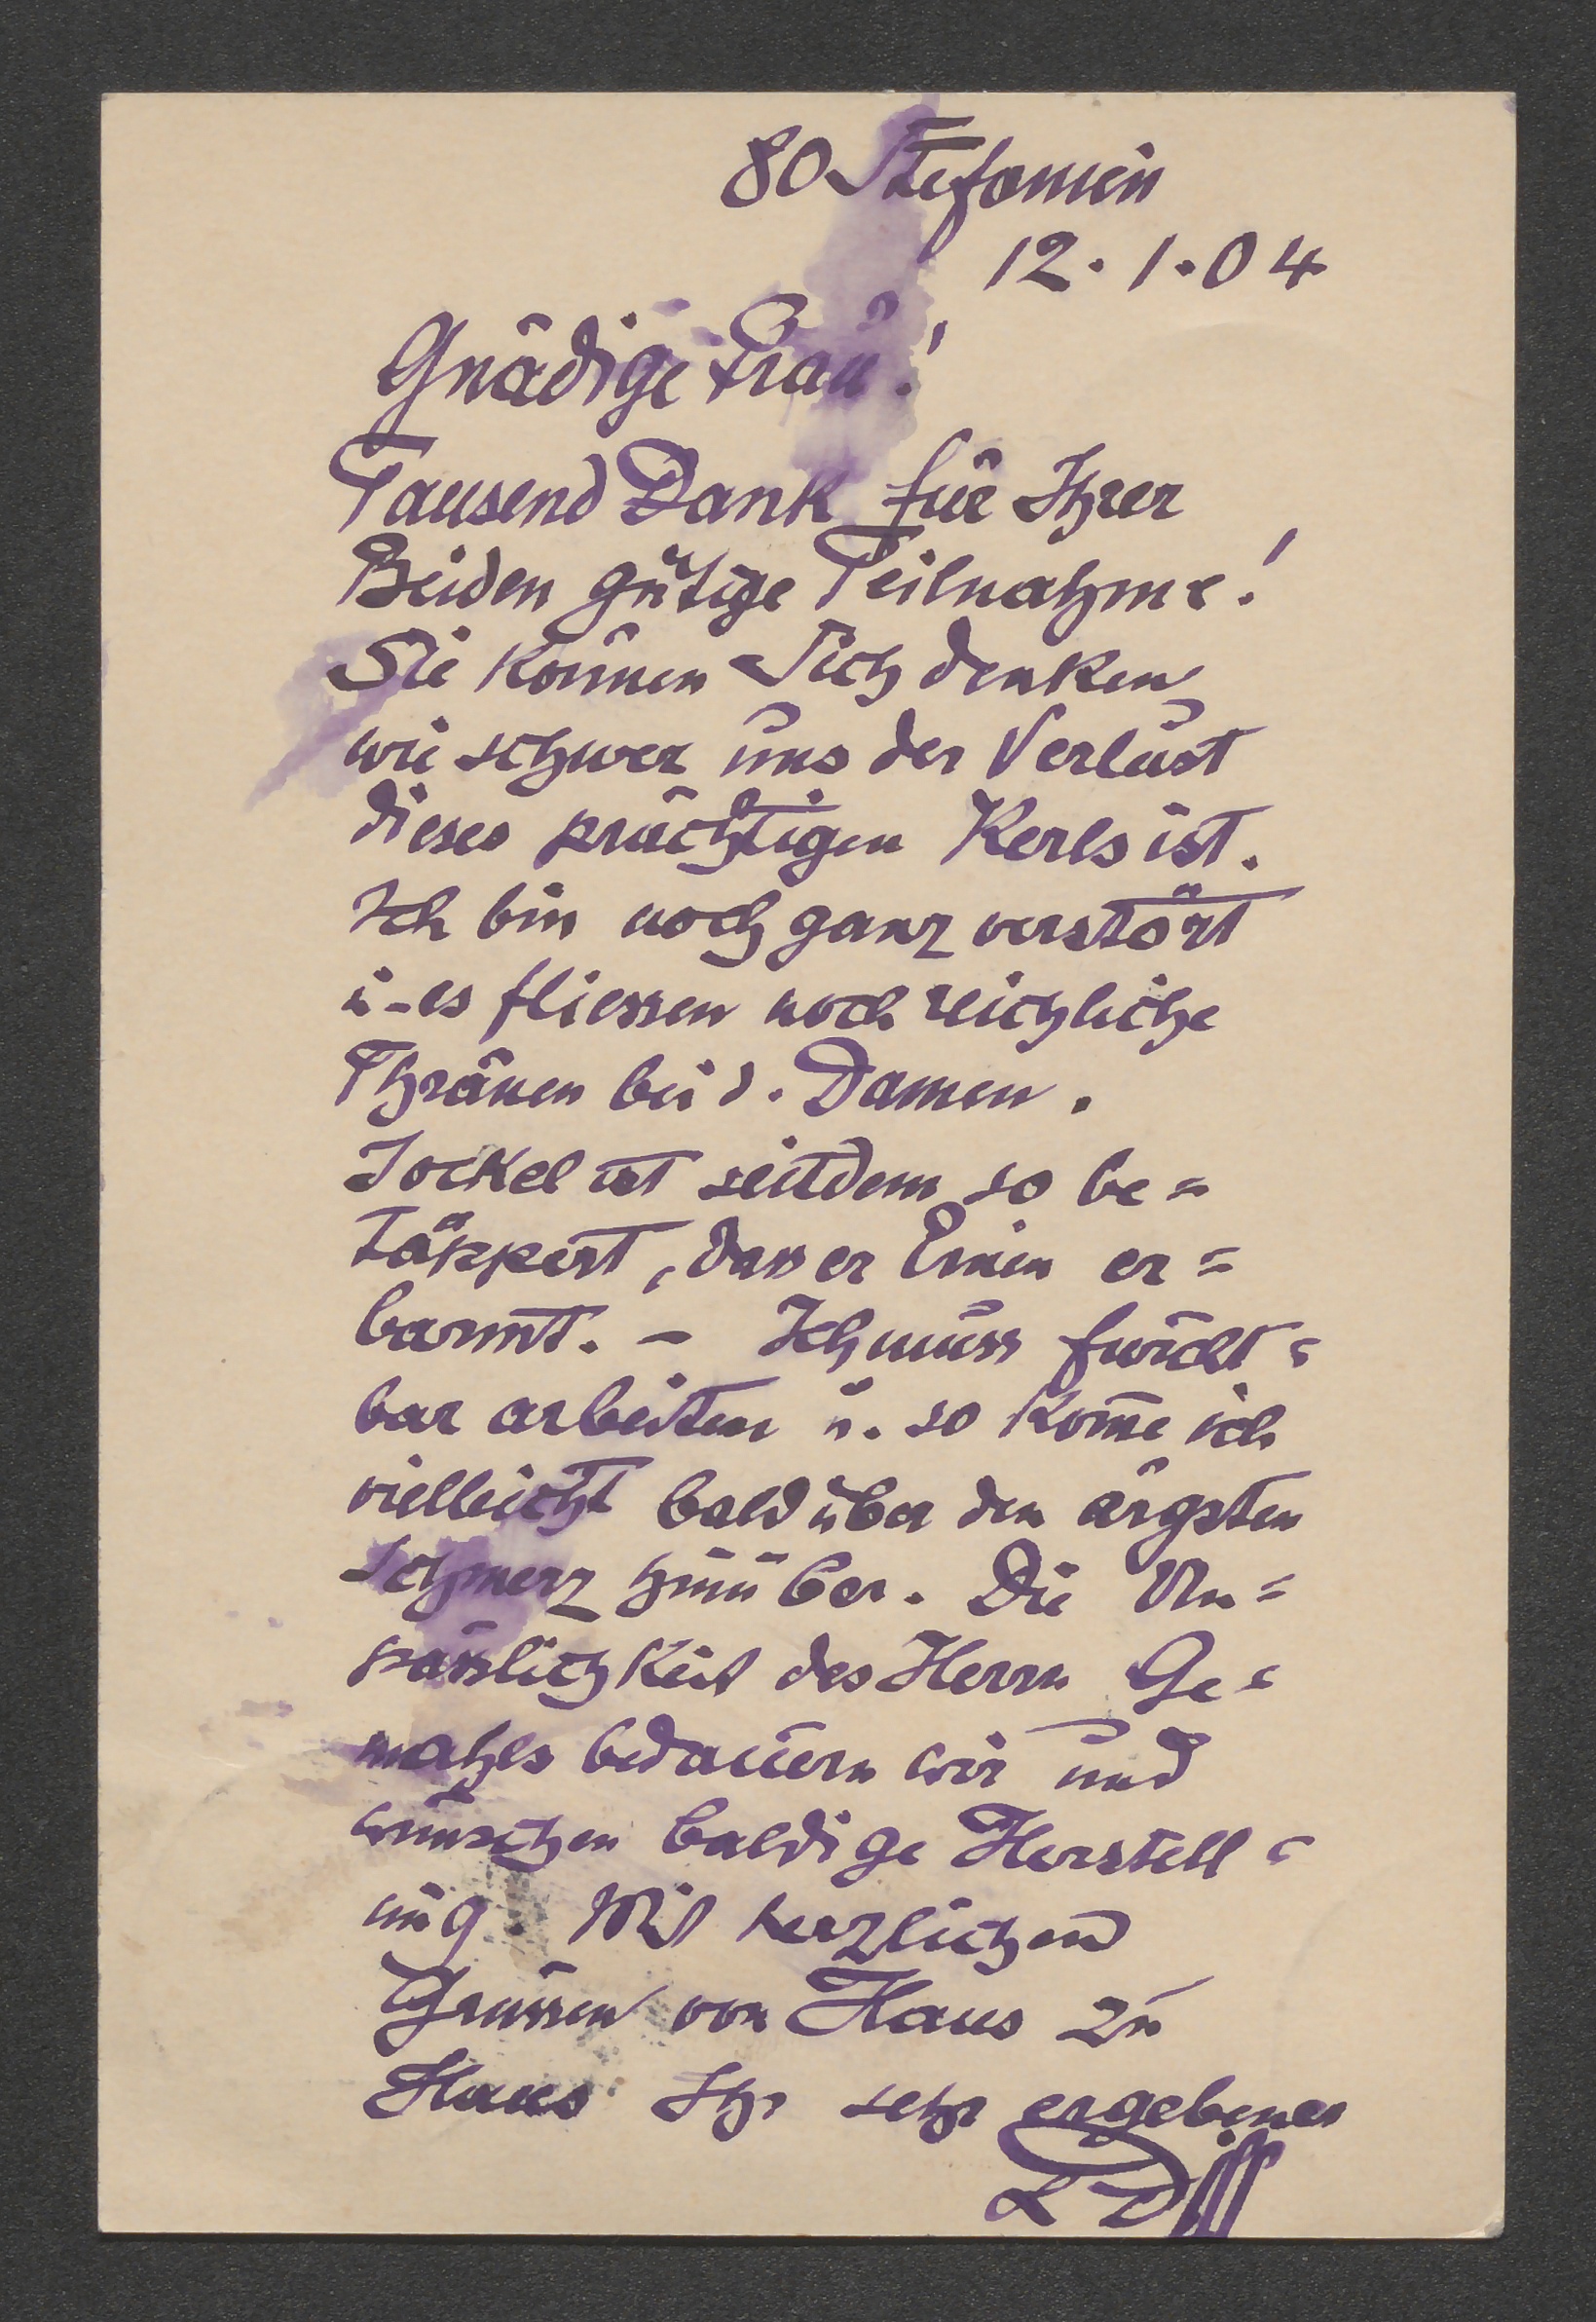 80 Stefanien
12.1.04
Gnädige Frau!
Tausend Dank für Ihrer
Beiden gütige Teilnahme!
Sie können Sich denken,
wie schwer uns der Verlust
dieses prächtigen Kerls ist.
Ich bin noch ganz verstört
u. es fliessen noch reichliche
Thränen bei d. Damen.
Jockel ist seitdem so be=
täppert, dass er Einen er=
barmt. - Ich muss furcht=
bar arbeiten u. so kom̅e ich
vielleicht bald über den ärgsten
Schmerz hinüber. Die Un=
pässlichkeit des Herrn Ge=
mahls bedauern wir und
wünschen baldige Herstell=
ung. Mit herzlichen
Grüssen von Haus zu
Haus Ihr sehr ergebener